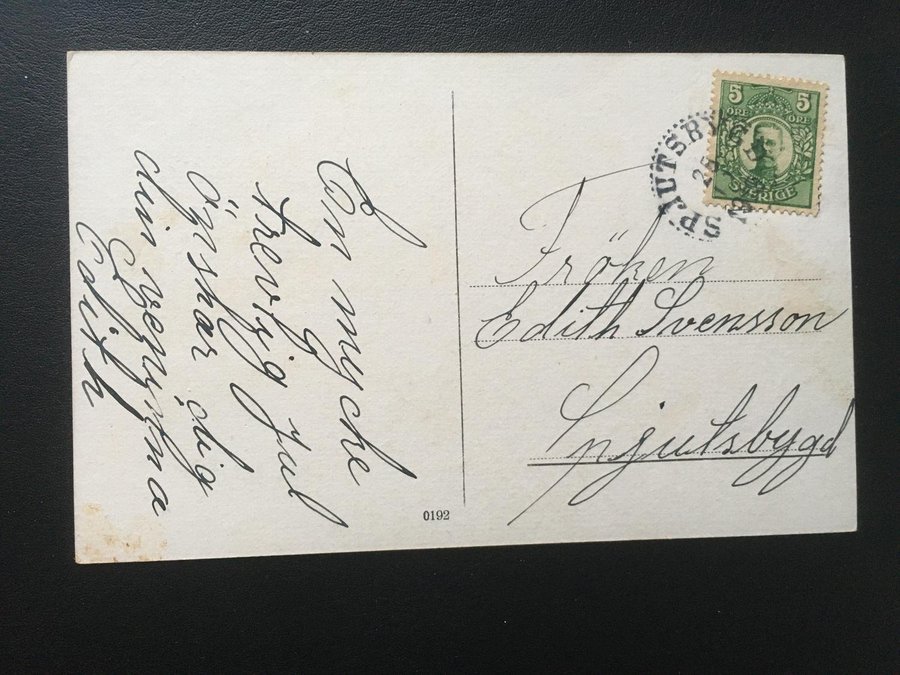 En mycke
trevlig Jul
önskar dig
din
Edith
5 5
ÖRE ÖRE
SVERIGE
SPJUTSBYGD
25
Fröken
Edith Svensson
Spjutsbygd
0192